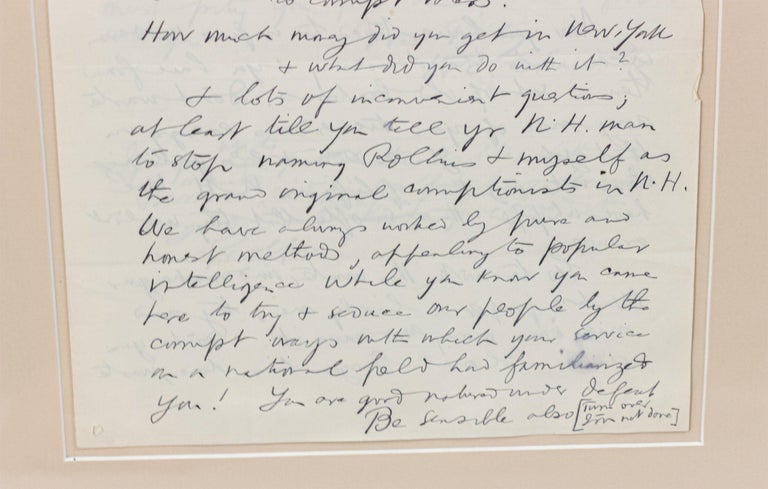 to corrupt
How much money did you get in New York
& what did you do with it?
& lots of inconvenient questions;
at least till you tell yr N.H. man
to stop naming Rollins & myself as
the grand original corruptionists in N.H.
We have always worked by pure and
honest methods, appealing to popular
intelligence while you know you came
here to try & seduce our people by the
corrupt ways with which your service
on a national field had familiarized
you! You are good natured under defeat
Be sensible also [Turn over
I'm not done]